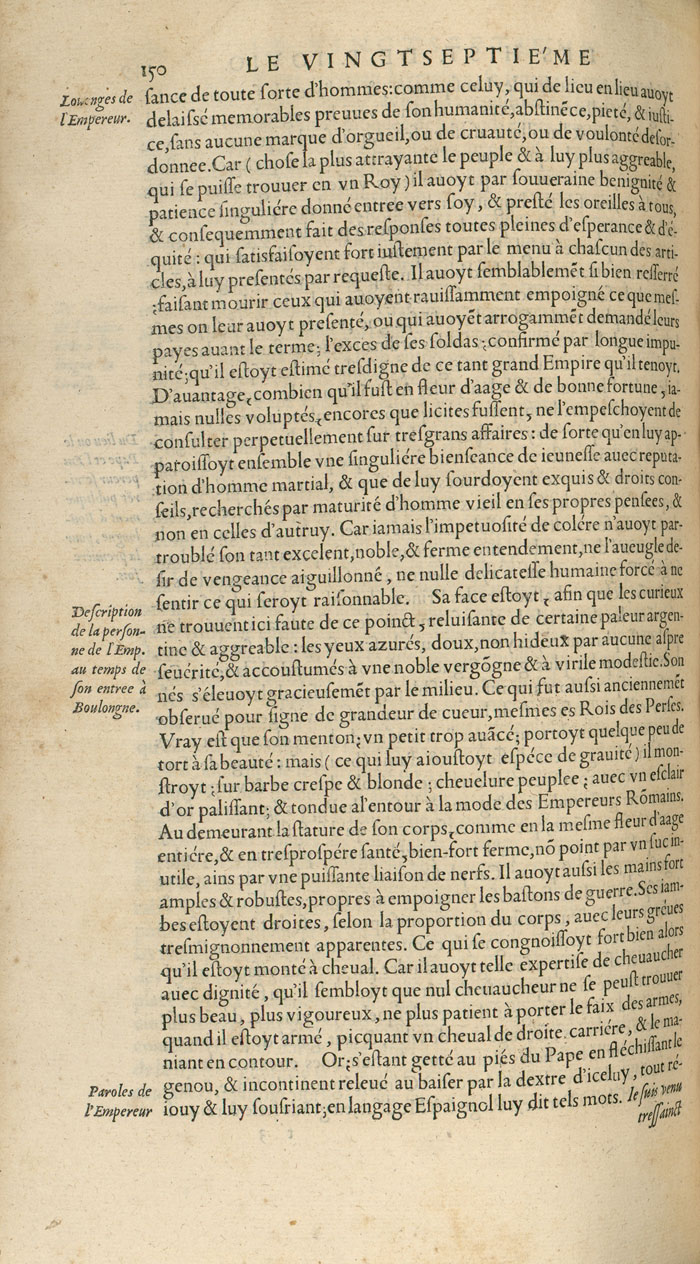 150 LE VINGTSEPTIE'ME
Louenges de
l'Empereur.
ſance de toute ſorte d'hommes:comme celuy, qui de lieu en lieu auoyt
delaiſsé memorables preuues de ſon humanité,abſtinēce,pieté, & iuſti-
ce,ſans aucune marque d'orgueil,ou de cruauté,ou de voulonté deſor-
donnee.Car ( choſe la plus attrayante le peuple & à luy plus aggreable,
qui ſe puiſſe trouuer en vn Roy) il auoyt par ſouueraine benignité &
patience ſinguliére donné entree vers ſoy, & preſté les oreilles à tous,
& conſequemment fait des reſponſes toutes pleines d'eſperance & d'é-
quité : qui ſatisfaiſoyent fort iuſtement par le menu à chaſcun des arti-
cles,à luy preſentés par requeſte. Il auoyt ſemblablemēt ſi bien reſſerré
;faiſant mourir ceux qui auoyent rauiſſamment empoigné ce que meſ-
mes on leur auoyt preſenté, ou qui auoyēt arrogammēt demandé leurs
payes auant le terme; l'exces de ſes ſoldas ; confirmé par longue impu-
nité;qu'il eſtoyt eſtimé treſdigne de ce tant grand Empire qu'il tenoyt.
D'auantage, combien qu'il fuſt en fleur d'aage & de bonne fortune, ia-
mais nulles voluptés, encores que licites fuſſent, ne l'empeſchoyent de
conſulter perpetuellement ſur treſgrans affaires : de ſorte qu'en luy ap-
paroiſſoyt enſemble vne ſinguliére bienſeance de ieuneſſe auec reputa-
tion d'homme martial, & que de luy ſourdoyent exquis & droits con-
ſeils,recherchés par maturité d'homme vieil en ſes propres penſees, &
non en celles d'autruy. Car iamais l'impetuoſité de colére n'auoyt par-
troublé ſon tant excelent,noble,& ferme entendement,ne l'aueugle de-
ſir de vengeance aiguillonné , ne nulle delicateſſe humaine forcé à ne
ſentir ce qui ſeroyt raiſonnable. Sa face eſtoyt , afin que les curieux
Deſcription
de la perſon-
ne de l'Emp.
au temps de
ſon entree à
Boulongne.
ne trouuent ici faute de ce poinct , reluiſante de certaine paleur argen-
tine & aggreable : les yeux azurés, doux,non hideux par aucune aſpre
ſeuérité,& accouſtumés à vne noble vergōgne & à virile modeſtie.Son
nés s'éleuoyt gracieuſemēt par le milieu. Ce qui fut auſsi anciennemēt
obſerué pour ſigne de grandeur de cueur,meſmes es Rois des Perſes.
Vray eſt que ſon menton; vn petit trop auācé; portoyt quelque peu de
tort à ſa beauté : mais ( ce qui luy aiouſtoyt eſpéce de grauité ) il mon-
ſtroyt ; ſur barbe creſpe & blonde ; cheuelure peuplee ; auec vn eſclair
d'or paliſſant; & tondue al'entour à la mode des Empereurs Romains.
Au demeurant la ſtature de ſon corps, comme en la meſme fleur d'aage
entiére,& en treſproſpére ſanté,bien-fort ferme,nō point par vn ſuc in-
utile, ains par vne puiſſante liaiſon de nerfs. Il auoyt auſsi les mains fort
amples & robuſtes,propres à empoigner les baſtons de guerre.Ses iam-
bes eſtoyent droites, ſelon la proportion du corps , auec leurs gréues
treſmignonnement apparentes. Ce qui ſe congnoiſſoyt fort bien alors
qu'il eſtoyt monté à cheual. Car il auoyt telle expertiſe de cheuaucher
auec dignité , qu'il ſembloyt que nul cheuaucheur ne ſe peuſt trouuer
plus beau , plus vigoureux , ne plus patient à porter le faix des armes,
quand il eſtoyt armé , picquant vn cheual de droite carriére, & le ma-
niant en contour. Or; s'eſtant getté au piés du Pape en fléchiſſant le
Paroles de
l'Empereur
genou, & incontinent releué au baiſer par la dextre d'iceluy, tout ré-
iouy & luy ſouſriant; en langage Eſpaignol luy dit tels mots. Ie ſuis venu
treſſainct